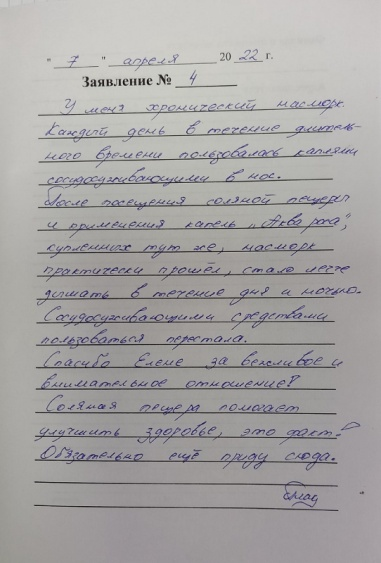 " 7 " апреля 20 22 г.
Заявление № 4
У меня хронический насморк.
Каждый день в течение длитель-
ного времени пользовалась каплями
сосудосуживающими в нос.
После посещения соляной пещеры
и применения капель „Аква рога",
купленных тут же, насморк
практически прошёл, стало легче
дышать в течение дня и ночью.
Сосудосуживающими средствами
пользоваться перестала.
Спасибо Елене за вежливое и
внимательное отношение!
Соляная пещера помогает
улучшить здоровье, это факт!
Обязательно ещё приду сюда.